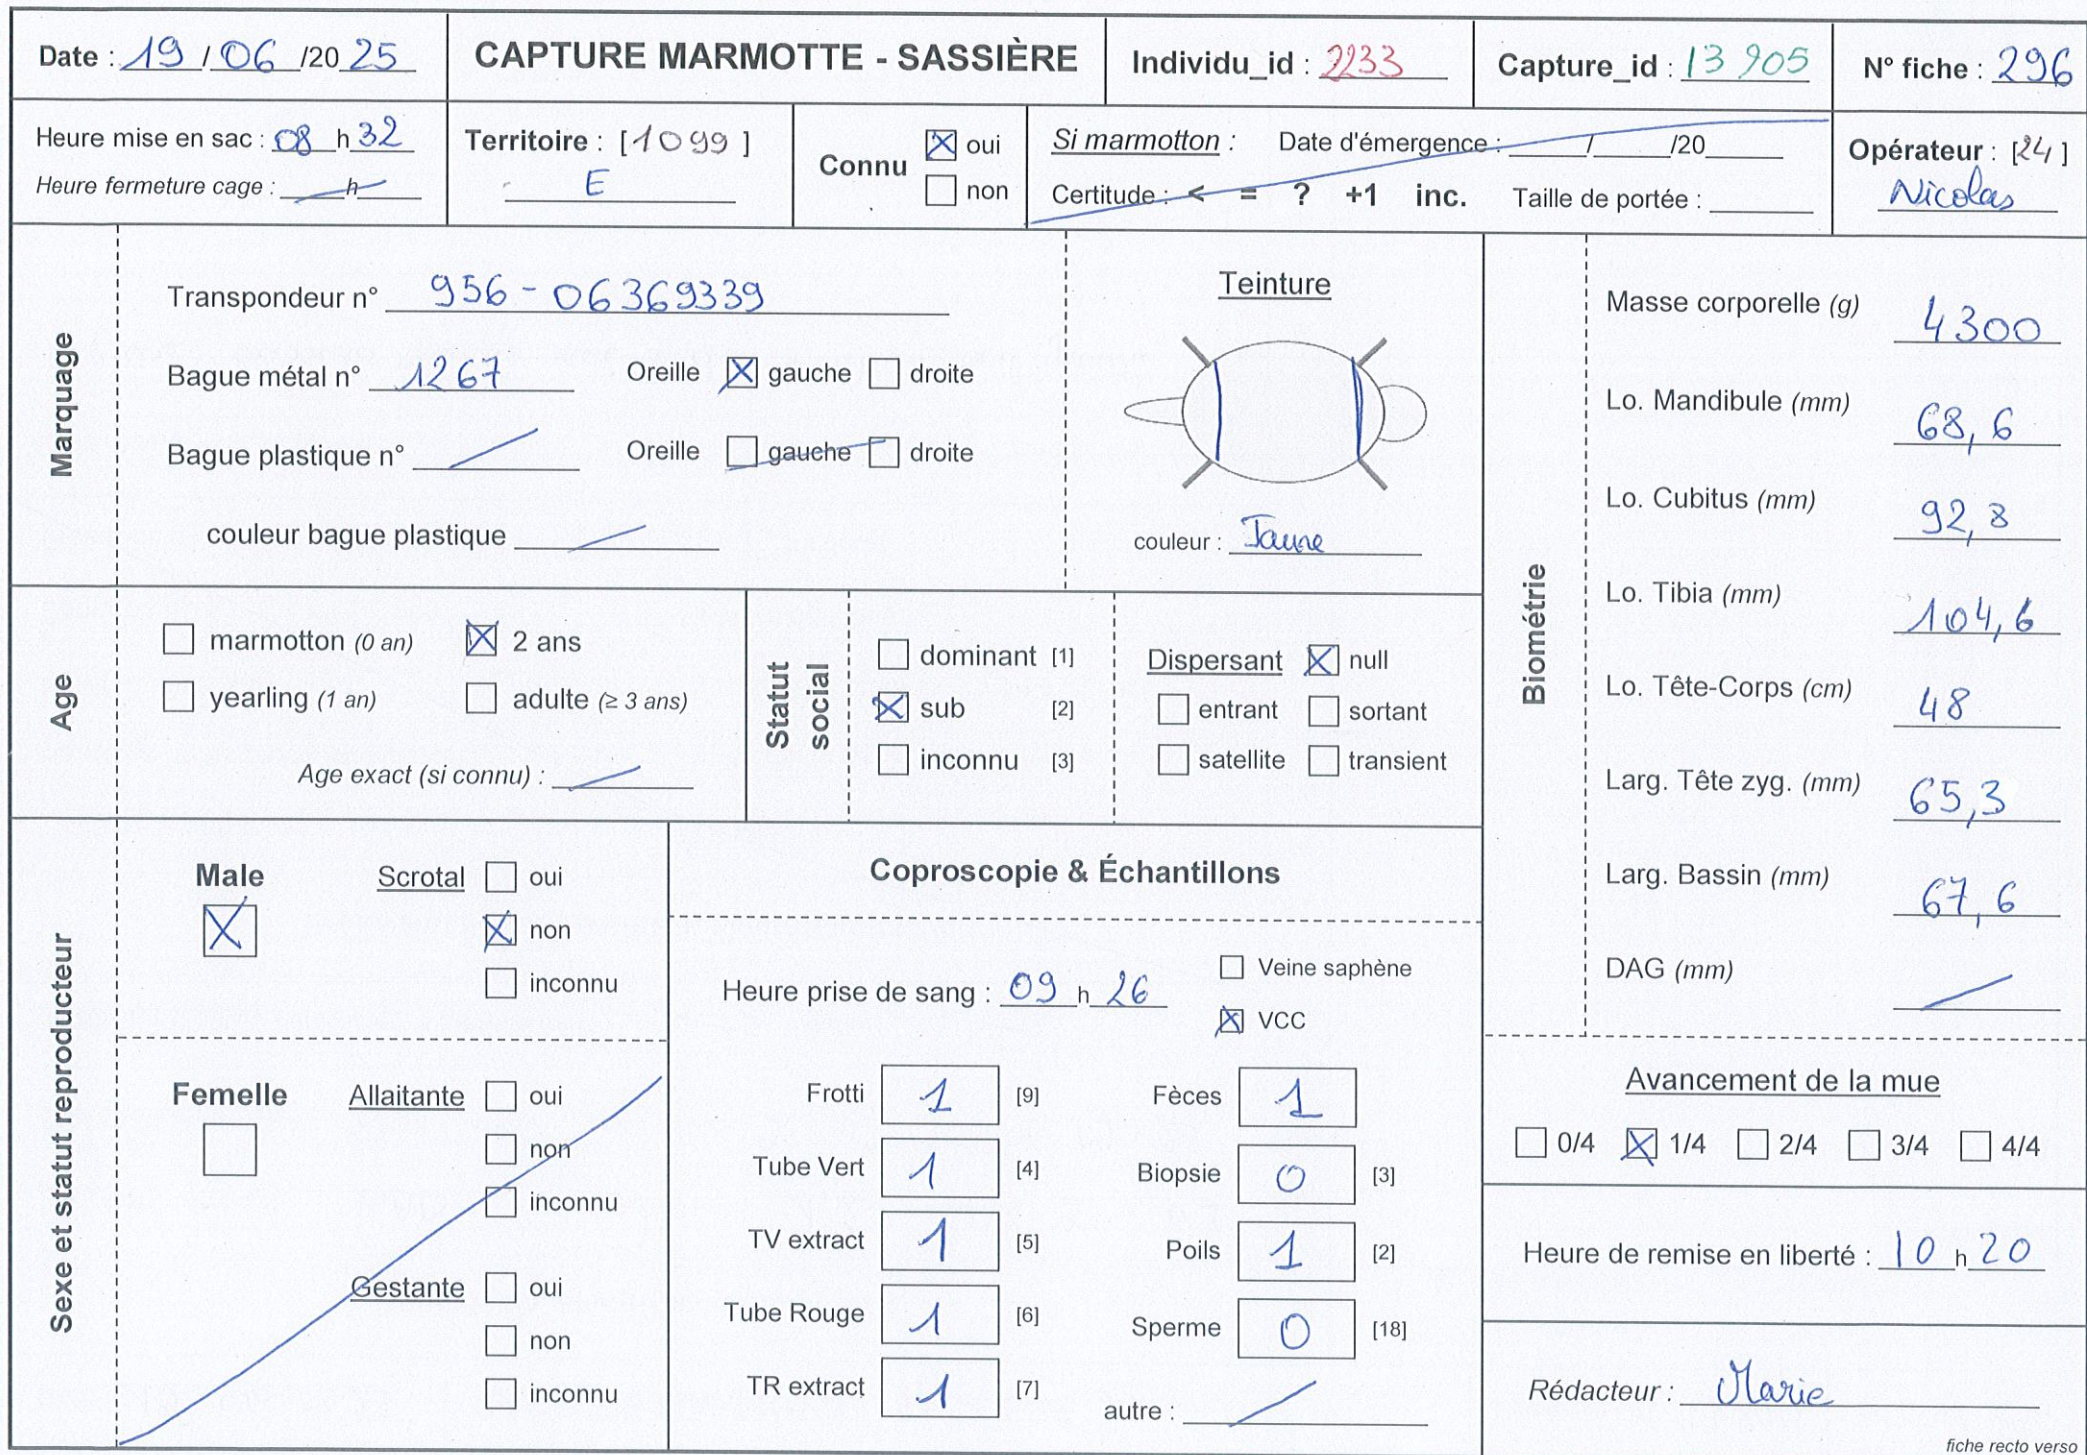 Date : 19 / 06 /20 25
CAPTURE MARMOTTE - SASSIÈRE
Individu_id : 2233
Capture_id : 13 905
N° fiche : 296
Heure mise en sac : 08 h 32
Heure fermeture cage : h
Territoire : [1099]
E
Connu
oui
non
Si marmotton : Date d'émergence : / /20
Certitude : < = ? +1 inc. Taille de portée :
Opérateur : [24]
Nicolas
Marquage
Transpondeur n° 956 - 06369339
Bague métal n° 1267 Oreille gauche droite
Bague plastique n° Oreille gauche droite
couleur bague plastique
Teinture
couleur : Jaune
Age
marmotton (0 an) 2 ans
yearling (1 an) adulte (≥ 3 ans)
Age exact (si connu) :
Statut social
dominant [1]
sub [2]
inconnu [3]
Dispersant null
entrant sortant
satellite transient
Biométrie
Masse corporelle (g) 4300
Lo. Mandibule (mm) 68,6
Lo. Cubitus (mm) 92,8
Lo. Tibia (mm) 104,6
Lo. Tête-Corps (cm) 48
Larg. Tête zyg. (mm) 65,3
Larg. Bassin (mm) 67,6
DAG (mm)
Sexe et statut reproducteur
Male Scrotal oui
non
inconnu
Femelle Allaitante oui
non
inconnu
Gestante oui
non
inconnu
Coproscopie & Échantillons
Heure prise de sang : 09 h 26
Veine saphène
VCC
Frotti 1 [9] Fèces 1
Tube Vert 1 [4] Biopsie 0 [3]
TV extract 1 [5] Poils 1 [2]
Tube Rouge 1 [6] Sperme 0 [18]
TR extract 1 [7] autre :
Avancement de la mue
0/4 1/4 2/4 3/4 4/4
Heure de remise en liberté : 10 h 20
Rédacteur : Marie
fiche recto verso